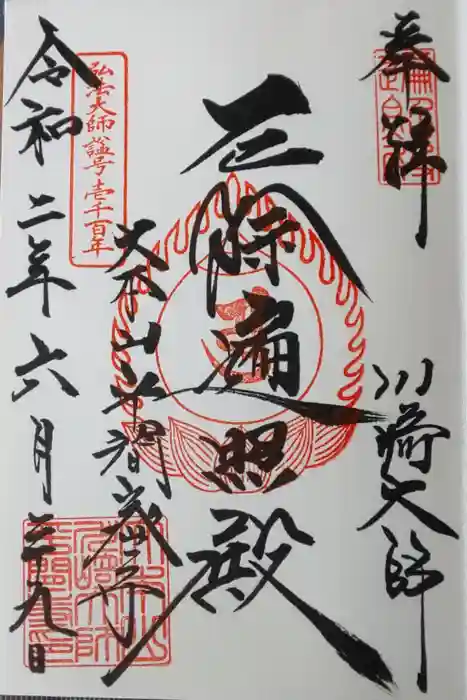 奉拝
川崎大師
遍照殿
大本山平間寺
弘法大師諡号壱千百年
令和二年六月二十九日